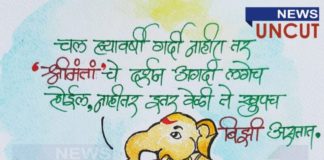 NEWS
UNCUT
चल ह्यावर्षी गर्दी नाहीत तर
'श्रीमंतां' चे दर्शन अगदी लगेच
होईल, नाहीतर इतर वेळी ते खुपच
बिझी असतात.